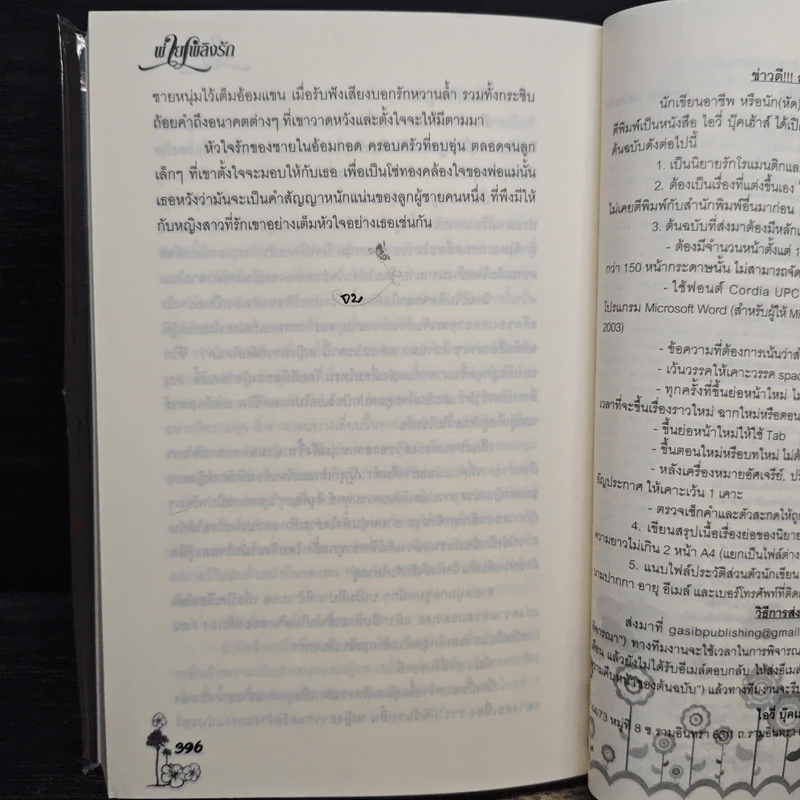 พ่ายเพลิงรัก
ชายหนุ่มไว้เต็มอ้อมแขน เมื่อรับฟังเสียงบอกรักหวานล้ำ รวมทั้งกระซิบ
ถ้อยคำถึงอนาคตต่างๆ ที่เขาวาดหวังและตั้งใจจะให้มีตามมา
หัวใจรักของชายในอ้อมกอด ครอบครัวที่อบอุ่น ตลอดจนลูก
เล็กๆ ที่เขาตั้งใจจะมอบให้กับเธอ เพื่อเป็นโซ่ทองคล้องใจของพ่อแม่นั้น
เธอหวังว่ามันจะเป็นคำสัญญาหนักแน่นของลูกผู้ชายคนหนึ่ง ที่พึงมีให้
กับหญิงสาวที่รักเขาอย่างเต็มหัวใจอย่างเธอเช่นกัน
จบ
396
ข่าวดี!!!
นักเขียนอาชีพ หรือนัก(หัด)
ตีพิมพ์เป็นหนังสือ ไอวี่ บุ๊คเฮ้าส์ ได้เปิด
ต้นฉบับดังต่อไปนี้
1. เป็นนิยายรักโรแมนติกและ
2. ต้องเป็นเรื่องที่แต่งขึ้นเอง
ไม่เคยตีพิมพ์กับสำนักพิมพ์อื่นมาก่อน
3. ต้นฉบับที่ส่งมาต้องมีหลัก
- ต้องมีจำนวนหน้าตั้งแต่ 1
กว่า 150 หน้ากระดาษนั้น ไม่สามารถจัด
- ใช้ฟอนต์ Cordia UPC
โปรแกรม Microsoft Word (สำหรับผู้ใช้ Mi
2003)
- ข้อความที่ต้องการเน้นว่า
- เว้นวรรคให้เคาะวรรค spac
- ทุกครั้งที่ขึ้นย่อหน้าใหม่ ไม่
เวลาที่จะขึ้นเรื่องราวใหม่ ฉากใหม่หรือตอน
- ขึ้นย่อหน้าใหม่ให้ใช้ Tab
- ขึ้นตอนใหม่หรือบทใหม่ ไม่ต้
- หลังเครื่องหมายอัศเจรีย์, ปรั
อัญประกาศ ให้เคาะเว้น 1 เคาะ
- ตรวจเช็กคำและตัวสะกดให้ถู
4. เขียนสรุปเนื้อเรื่องย่อของนิยาย
ความยาวไม่เกิน 2 หน้า A4 (แยกเป็นไฟล์ต่าง
5. แนบไฟล์ประวัติส่วนตัวนักเขียน
นามปากกา อายุ อีเมล์ และเบอร์โทรศัพท์ที่ติด
วิธีการส่ง
ส่งมาที่ gasibpublishing@gmail
พิจารณา") ทางทีมงานจะใช้เวลาในการพิจารณ
เดือน แล้วยังไม่ได้รับอีเมล์ตอบกลับ ให้ส่งอีเมล์
ความคืบหน้าของต้นฉบับ") แล้วทางทีมงานจะรีบ
ไอวี่ บุ๊คเ
44/73 หมู่ที่ 8 ซ.รามอินทรา ถ.รามอินทรา